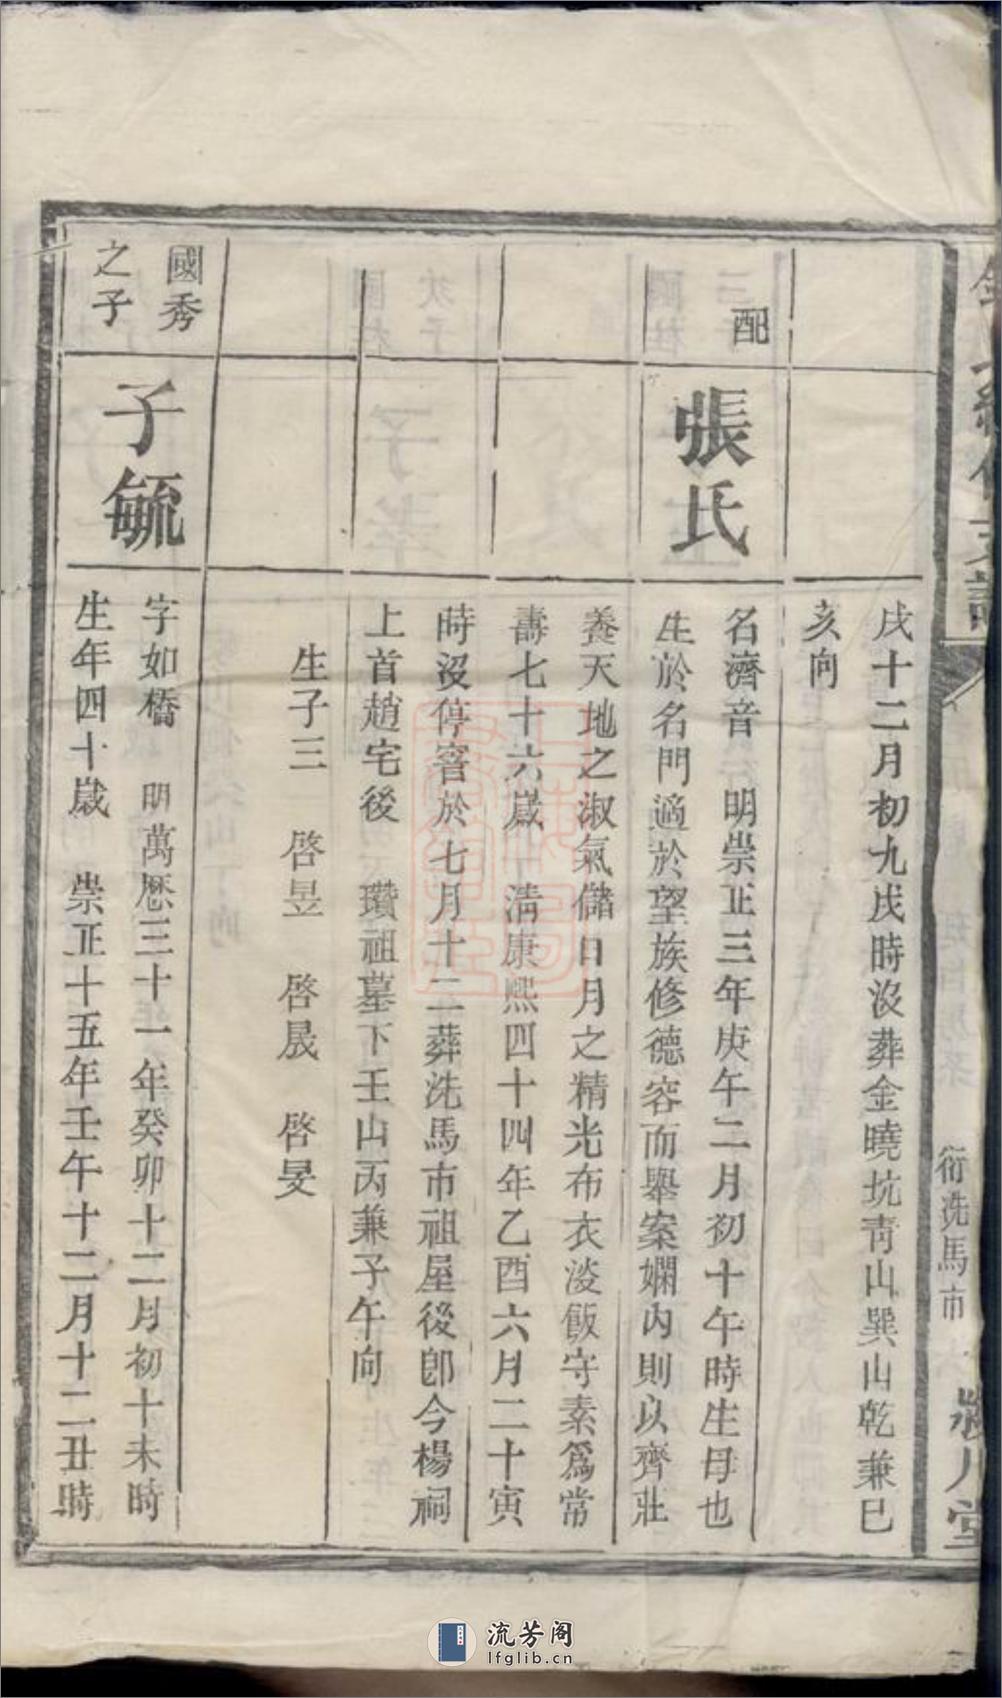 戌十二月初九戌時沒葬金曉坑靑山巽山乾兼巳
亥向
配
張氏
名濟音 明崇正三年庚午二月初十午時生母也
生於名門適於望族修德容而舉案嫻內則以齊壯
養天地之淑氣儲日月之精光布衣淡飯守素爲常
壽七十六歲 淸康熙四十四年乙酉六月二十寅
時沒停窨於七月十二葬洗馬市祖屋後卽今楊祠
上首趙宅後 瓚祖墓下壬山丙兼子午向
生子三 啓昱 啓晟 啓旻
國秀
之子
子毓
字如橋 明萬歷三十一年癸卯十二月初十未時
生年四十歲 崇正十五年壬午十二月十二丑時
衍洗馬市
流芳阁
lfglib.cn